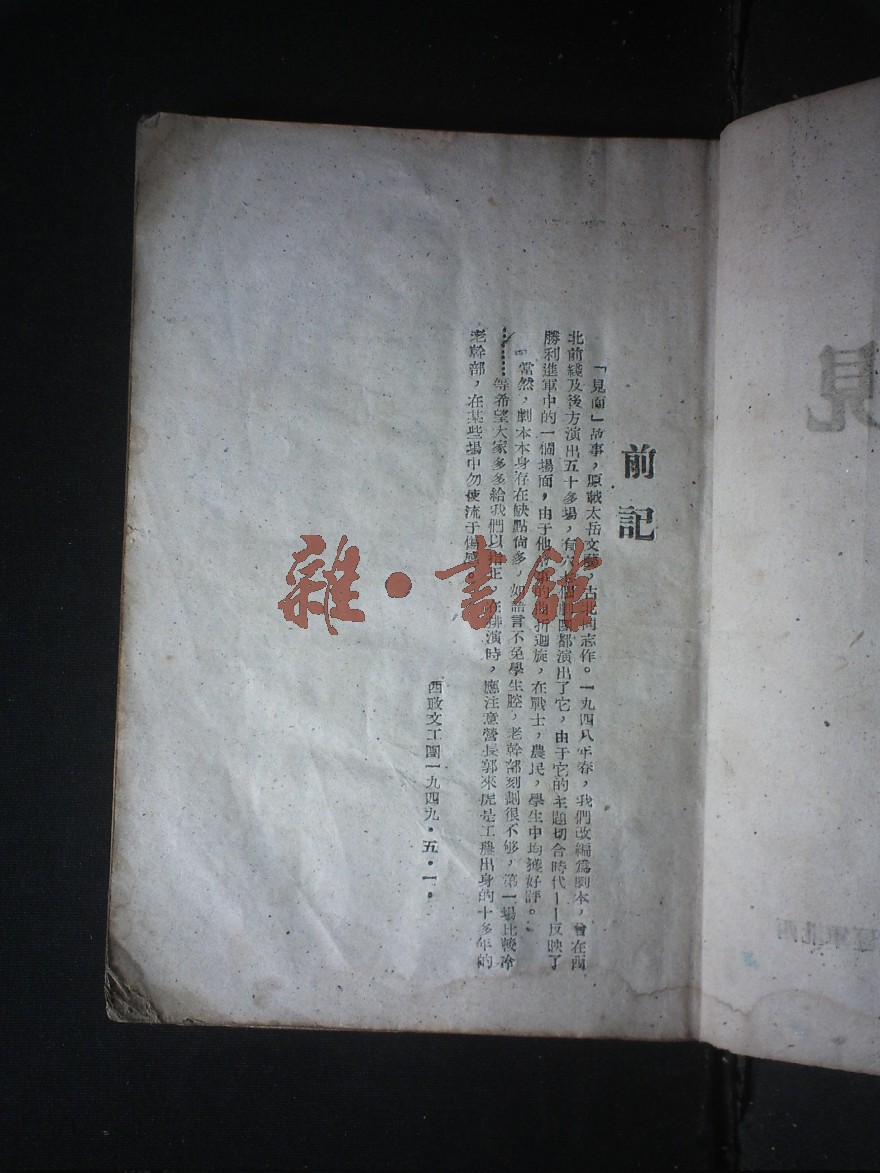 前記
「見面」故事,原載太岳文藝,古北同志作。一九四八年春,我們改編爲劇本,曾在西
北前綫及後方演出五十多塲,有六七個劇團都演出了它,由于它的主題切合時代——反映了
勝利進軍中的一個塲面,由于他 的曲折迴旋,在戰士,農民,學生中均獲好評。
當然,劇本本身存在缺點尙多,如語言不免學生腔,老幹部刻劃很不够,第一塲比較冷
………等希望大家多多給我們以指正,在排演時,應注意營長郭來虎是工農出身的十多年的
老幹部,在某些塲中勿使流于傷感
西政文工團一九四九·五·一·
雜·書館
見